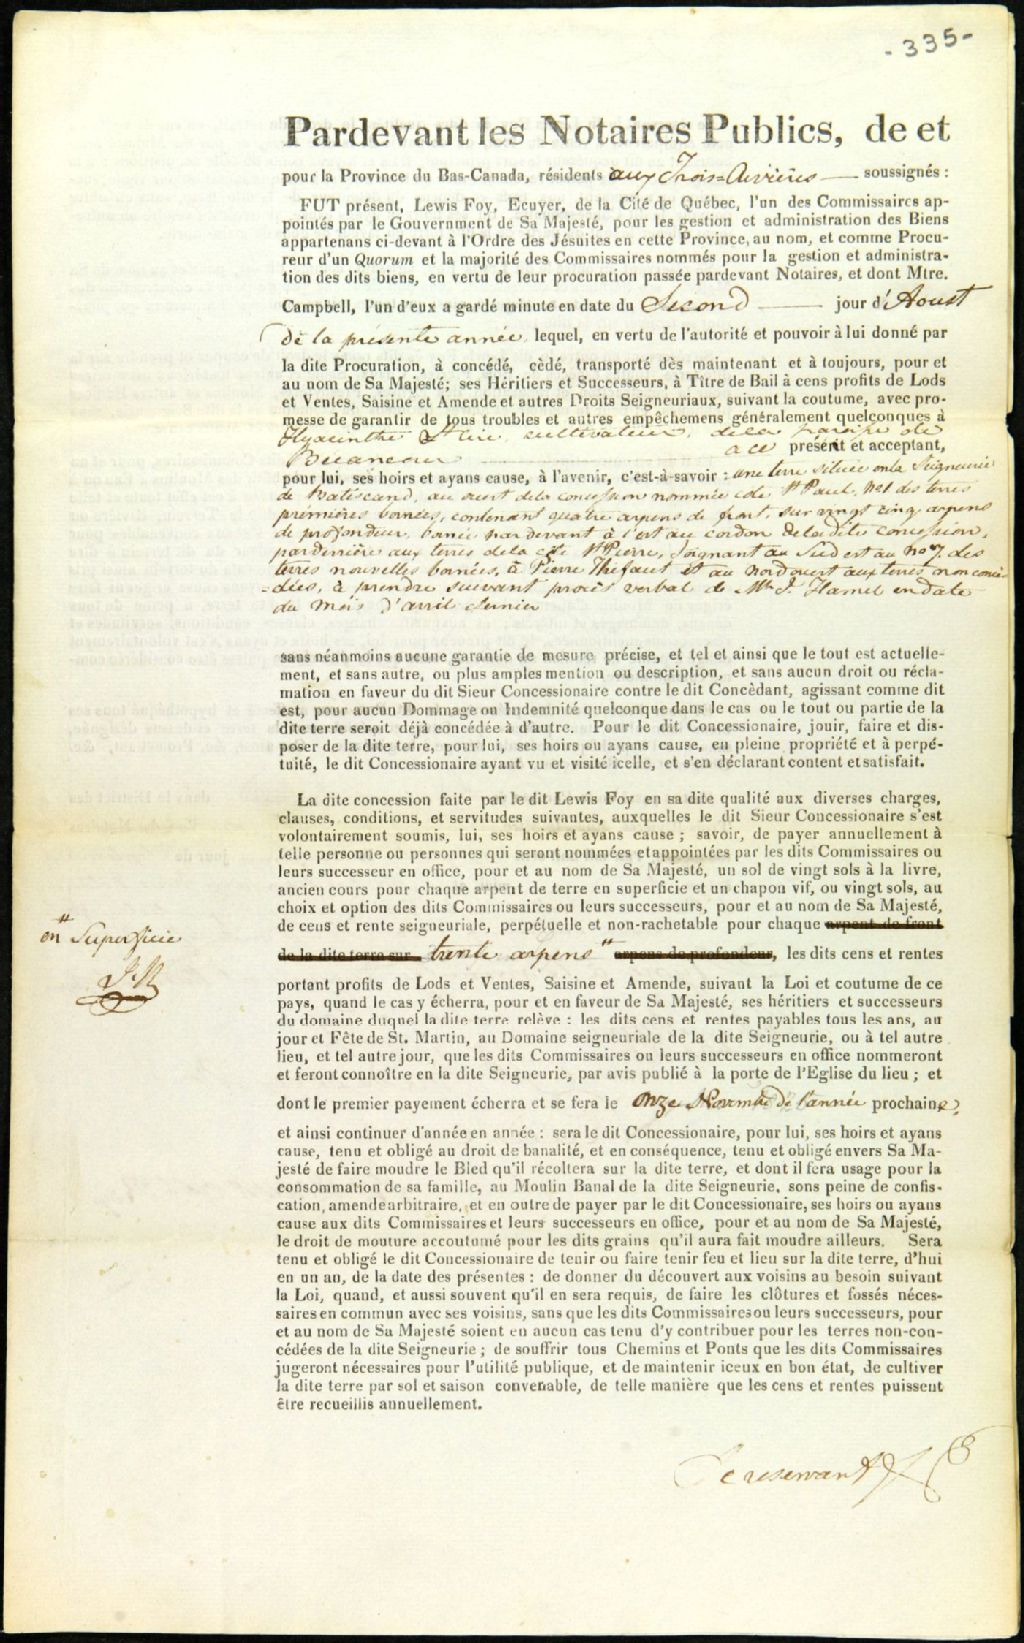 - 335 -
Pardevant les Notaires Publics, de et
pour la Province du Bas-Canada, résidents aux Trois-Rivières — soussignés :
FUT présent, Lewis Foy, Ecuyer, de la Cité de Québec, l'un des Commissaires ap-
pointés par le Gouvernment de Sa Majesté, pour les gestion et administration des Biens
appartenans ci-devant à l'Ordre des Jésuites en cette Province, au nom, et comme Procu-
reur d'un Quorum et la majorité des Commissaires nommés pour la gestion et administra-
tion des dits biens, en vertu de leur procuration passée pardevant Notaires, et dont Mtre.
Campbell, l'un d'eux a gardé minute en date du Second — jour d'Aoust
de la présente année, lequel, en vertu de l'autorité et pouvoir à lui donné par
la dite Procuration, à concédé, cèdé, transporté dès maintenant et à toujours, pour et
au nom de Sa Majesté; ses Héritiers et Successeurs, à Tître de Bail à cens profits de Lods
et Ventes, Saisine et Amende et autres Droits Seigneuriaux, suivant la coutume, avec pro-
messe de garantir de tous troubles et autres empêchemens généralement quelconques à
Hyacinthe cultivateur, de la paroise de
Becancour — a ce présent et acceptant,
pour lui, ses hoirs et ayans cause, à l'avenir, c'est-à-savoir : une terre située en la Seigneurie
de Batiscand, au ouest de la concession nommée côte St Paul, No 1 des terres
premières bornées, contenant quatre arpens de front, sur vingt cinq arpens
de profondeur, bornée par devant à l'est au cordon de la dite concession,
par derrière aux terres de la côte St Pierre, joignant au Sud est au No 7. des
terres nouvelles bornées, à Pierre Thifaut et au Nord ouest aux terres non concé
-dées, à prendre suivant procès verbal de Mtre J. Hamel en date
du mois d'avril dernier
sans néanmoins aucune garantie de mesure précise, et tel et ainsi que le tout est actuelle-
ment, et sans autre, ou plus amples mention ou description, et sans aucun droit ou récla-
mation en faveur du dit Sieur Concessionaire contre le dit Concèdant, agissant comme dit
est, pour aucun Dommage ou Indemnité quelconque dans le cas ou le tout ou partie de la
dite terre seroit déjà concédée à d'autre. Pour le dit Concessionaire, jouir, faire et dis-
poser de la dite terre, pour lui, ses hoirs ou ayans cause, en pleine propriété et à perpé-
tuité, le dit Concessionaire ayant vu et visité icelle, et s'en déclarant content et satisfait.
La dite concession faite par le dit Lewis Foy en sa dite qualité aux diverses charges,
clauses, conditions, et servitudes suivantes, auxquelles le dit Sieur Concessionaire s'est
volontairement soumis, lui, ses hoirs et ayans cause ; savoir, de payer annuellement à
telle personne ou personnes qui seront nommées et appointées par les dits Commissaires ou
leurs successeur en office, pour et au nom de Sa Majesté, un sol de vingt sols à la livre,
ancien cours pour chaque arpent de terre en superficie et un chapon vif, ou vingt sols, au
choix et option des dits Commissaires ou leurs successeurs, pour et au nom de Sa Majesté,
de cens et rente seigneuriale, perpétuelle et non-rachetable pour chaque arpent de front
de la dite terre sur trente arpens " arpens de profondeur, les dits cens et rentes
" en Superficie
portant profits de Lods et Ventes, Saisine et Amende, suivant la Loi et coutume de ce
pays, quand le cas y écherra, pour et en faveur de Sa Majesté, ses héritiers et successeurs
du domaine duquel la dite terre relève : les dits cens et rentes payables tous les ans, au
jour et Fête de St. Martin, au Domaine seigneuriale de la dite Seigneurie, ou à tel autre
lieu, et tel autre jour, que les dits Commissaires ou leurs successeurs en office nommeront
et feront connoître en la dite Seigneurie, par avis publié à la porte de l'Eglise du lieu ; et
dont le premier payement écherra et se fera le onze Novembre de l'année prochaine,
et ainsi continuer d'année en année : sera le dit Concessionaire, pour lui, ses hoirs et ayans
cause, tenu et obligé au droit de banalité, et en conséquence, tenu et obligé envers Sa Ma-
jesté de faire moudre le Bled qu'il récoltera sur la dite terre, et dont il fera usage pour la
consommation de sa famille, au Moulin Banal de la dite Seigneurie, sons peine de confis-
cation, amende arbitraire, et en outre de payer par le dit Concessionaire, ses hoirs ou ayans
cause aux dits Commissaires et leurs successeurs en office, pour et au nom de Sa Majesté,
le droit de mouture accoutumé pour les dits grains qu'il aura fait moudre ailleurs. Sera
tenu et obligé le dit Concessionaire de tenir ou faire tenir feu et lieu sur la dite terre, d'hui
en un an, de la date des présentes : de donner du découvert aux voisins au besoin suivant
la Loi, quand, et aussi souvent qu'il en sera requis, de faire les clôtures et fossés néces-
saires en commun avec ses voisins, sans que les dits Commissaires ou leurs successeurs, pour
et au nom de Sa Majesté soient en aucun cas tenu d'y contribuer pour les terres non-con-
cédées de la dite Seigneurie ; de souffrir tous Chemins et Ponts que les dits Commissaires
jugeront nécessaires pour l'utilité publique, et de maintenir iceux en bon état, de cultiver
la dite terre par sol et saison convenable, de telle manière que les cens et rentes puissent
être recueillis annuellement.
Se reservant